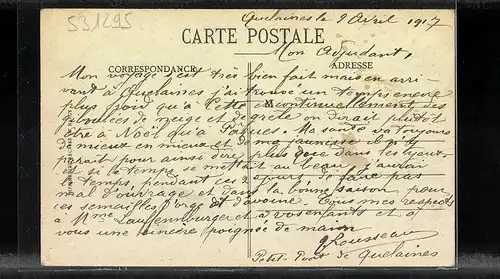 531295
Quelaines le 9 Avril 1917
CARTE POSTALE
Mon Adjudant,
CORRESPONDANCE
ADRESSE
Mon voyage s'est très bien fait mais en arri-
vant à Quelaines j'ai trouvé un temps encore
plus froid qu'à Cette continuellement des
M
giboulées de neige et de grèle on dirait plutôt
être à Noël qu'à Pâques. Ma santé va toujours
de mieux en mieux et de ma jaunisse il n'y
parait pour ainsi dire plus que dans les yeux
et si le temps se mettait au beau j'aurai
le temps, pendant ces jours de faire pas
mal d'ouvrage et dans la bonne saison pour
ces semailles d'orge et d'avoine. Tous mes respects
à Mme Lauffenburger et à vos enfants et à
vous une sincère poignée de main
Rousseau
Petit de Quelaines